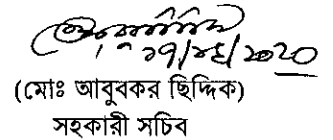 ১৭/০৮/২০২০
(মোঃ আবুবকর ছিদ্দিক)
সহকারী সচিব